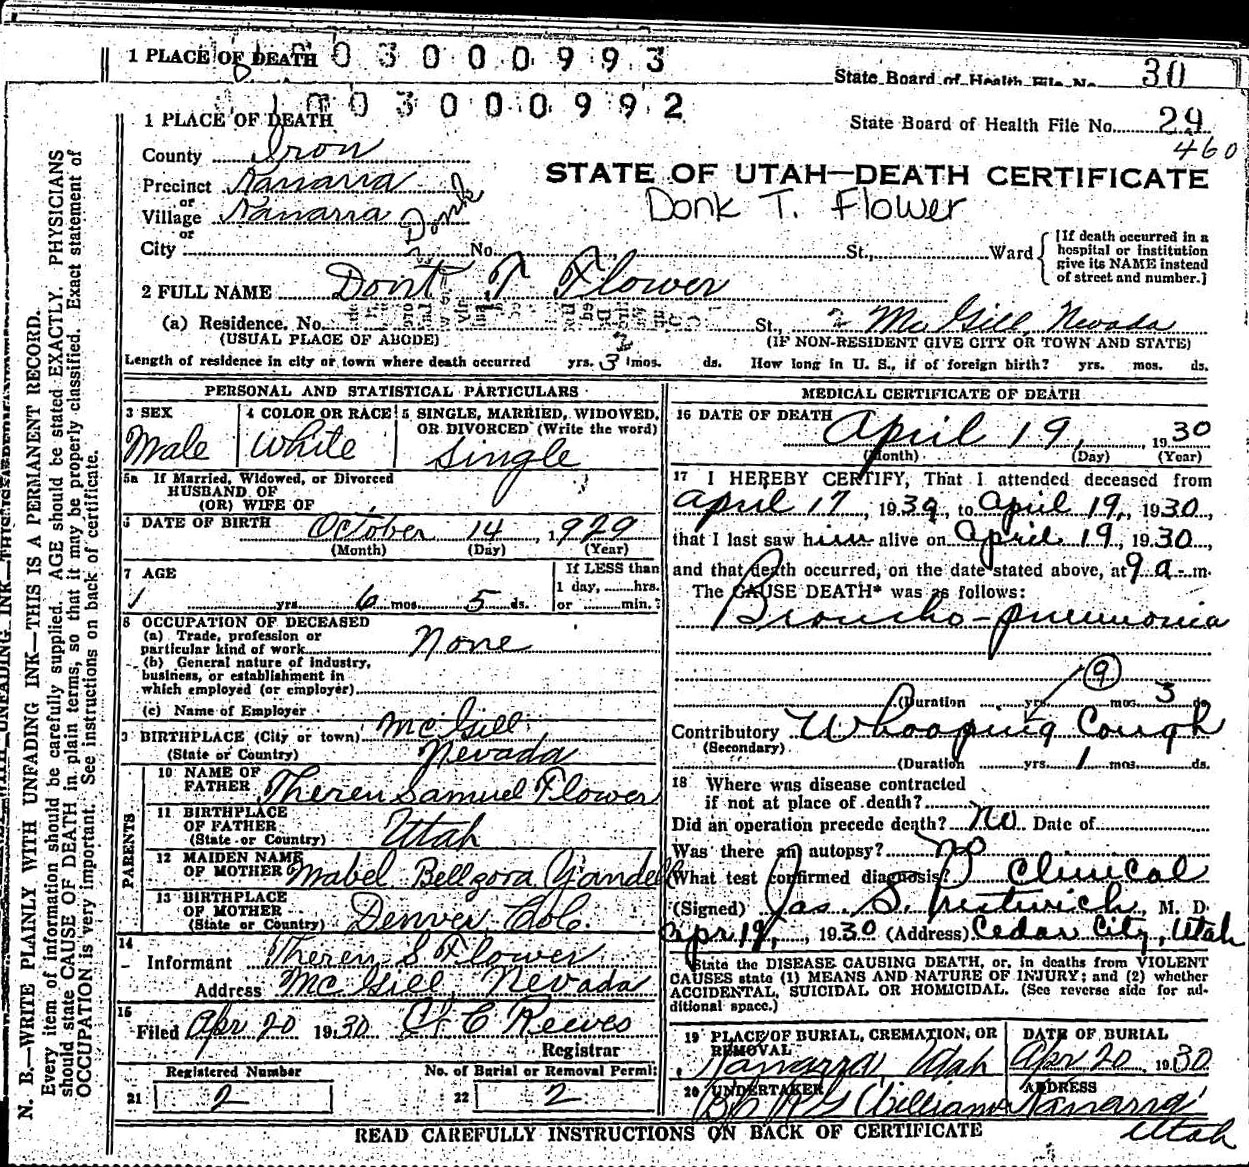 1 PLACE OF DEATH 0 3 0 0 0 9 9 3
State Board of Health File No. 30
1 0 0 3 0 0 0 9 9 2
1 PLACE OF DEATH
State Board of Health File No. 29
460
County Iron
Precinct Kanarra
or
Village Kanarra
or
City No. St., Ward
Donk
STATE OF UTAH—DEATH CERTIFICATE
Donk T. Flower
[If death occurred in a
hospital or institution
give its NAME instead
of street and number.]
2 FULL NAME Dont T Flower
(a) Residence. No. St., McGill, Nevada
(USUAL PLACE OF ABODE) (IF NON-RESIDENT GIVE CITY OR TOWN AND STATE)
Length of residence in city or town where death occurred yrs. 3 mos. ds. How long in U. S., if of foreign birth? yrs. mos. ds.
PERSONAL AND STATISTICAL PARTICULARS
3 SEX
Male
4 COLOR OR RACE
White
5 SINGLE, MARRIED, WIDOWED,
OR DIVORCED (Write the word)
Single
5a If Married, Widowed, or Divorced
HUSBAND OF
(OR) WIFE OF
6 DATE OF BIRTH October 14, 1929
(Month) (Day) (Year)
7 AGE
1 yrs. 6 mos. 5 ds.
If LESS than
1 day, ......hrs.
or ......min.?
8 OCCUPATION OF DECEASED
(a) Trade, profession or
particular kind of work None
(b) General nature of industry,
business, or establishment in
which employed (or employer)
(c) Name of Employer
9 BIRTHPLACE (City or town) McGill
(State or Country) Nevada
PARENTS
10 NAME OF
FATHER Theren Samuel Flower
11 BIRTHPLACE
OF FATHER
(State or Country) Utah
12 MAIDEN NAME
OF MOTHER Mabel Bellzora Yandell
13 BIRTHPLACE
OF MOTHER
(State or Country) Denver, Colo.
14
Informant Theren S Flower
Address McGill, Nevada
15
Filed Apr 20 1930 C. C. Reeves
Registrar
Registered Number No. of Burial or Removal Permit
21 2 22 2
MEDICAL CERTIFICATE OF DEATH
16 DATE OF DEATH
April 19, 1930
(Month) (Day) (Year)
17 I HEREBY CERTIFY, That I attended deceased from
April 17, 1930, to April 19, 1930,
that I last saw him alive on April 19, 1930,
and that death occurred, on the date stated above, at 9 a. m.
The CAUSE DEATH* was as follows:
Broncho-pneumonia
9
(Duration yrs. mos. 3 ds.
Contributory Whooping Cough
(Secondary)
(Duration yrs. 1 mos. ds.
18 Where was disease contracted
if not at place of death?
Did an operation precede death? No Date of
Was there an autopsy? no
What test confirmed diagnosis? Clinical
(Signed) Jas. S. Prestwich, M. D.
Apr 19, 1930 (Address) Cedar City, Utah
State the DISEASE CAUSING DEATH, or, in deaths from VIOLENT
CAUSES state (1) MEANS AND NATURE OF INJURY; and (2) whether
ACCIDENTAL, SUICIDAL OR HOMICIDAL. (See reverse side for ad-
ditional space.)
19 PLACE OF BURIAL, CREMATION, OR
REMOVAL
Kanarra, Utah
DATE OF BURIAL
Apr 20, 1930
20 UNDERTAKER
Williams
ADDRESS
Kanarra
Utah
READ CAREFULLY INSTRUCTIONS ON BACK OF CERTIFICATE
N. B.—WRITE PLAINLY WITH UNFADING INK—THIS IS A PERMANENT RECORD.
Every item of information should be carefully supplied. AGE should be stated EXACTLY. PHYSICIANS
should state CAUSE OF DEATH in plain terms, so that it may be properly classified. Exact statement of
OCCUPATION is very important. See instructions on back of certificate.